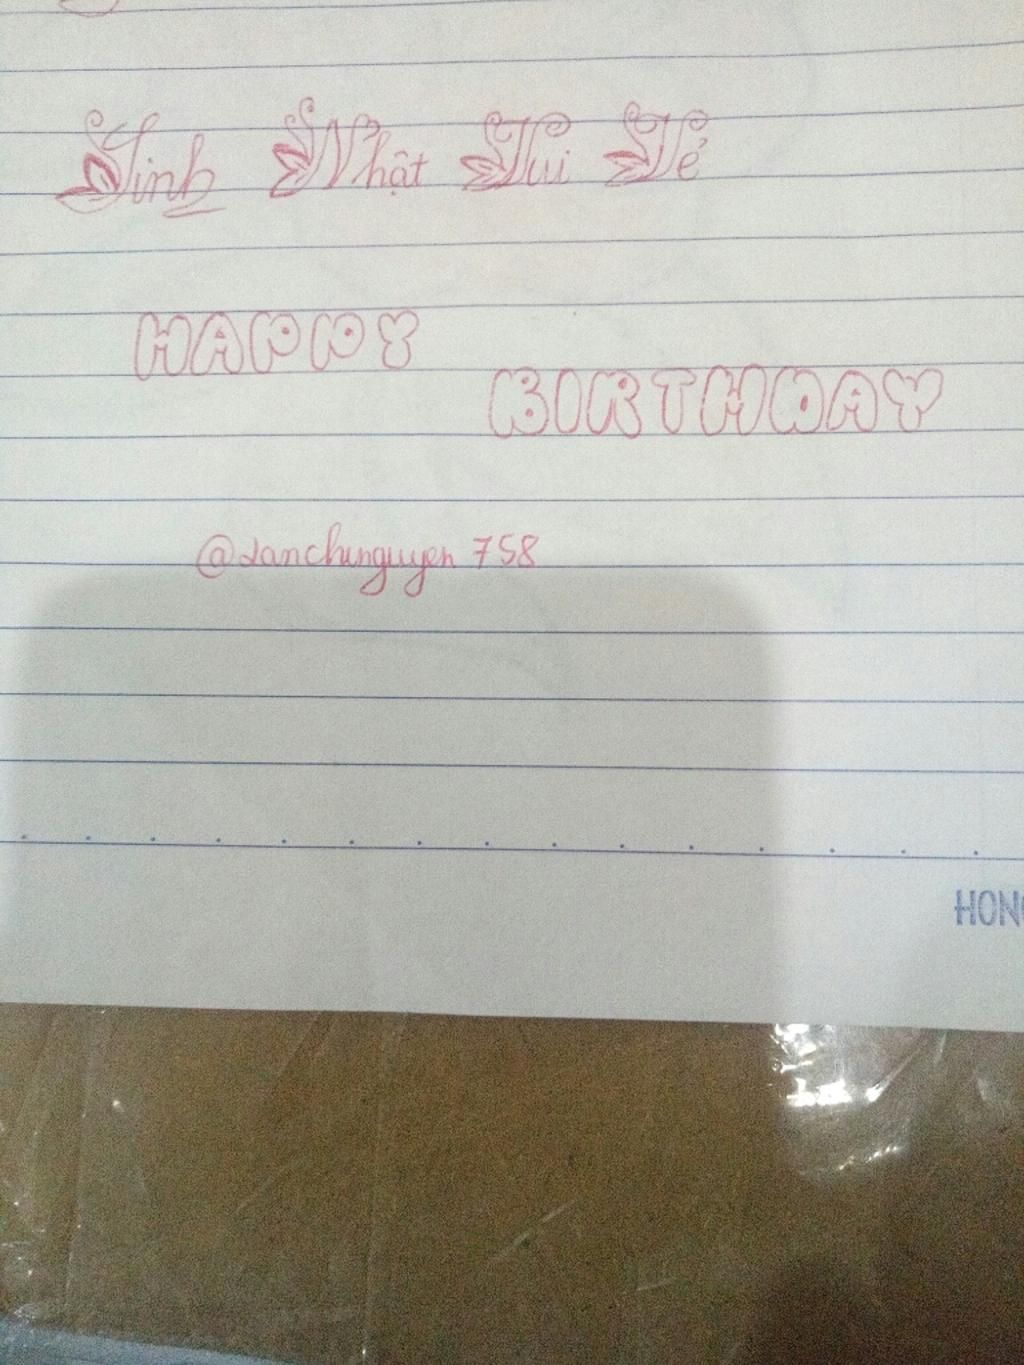 Sinh Nhật Tui Vẻ
HAPPY
BIRTHDAY
@lanchinguyen 758
HON